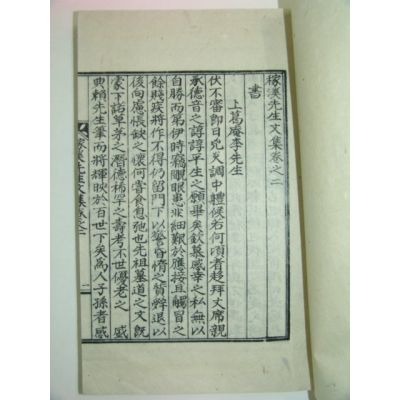 稼溪先生文集卷之二
書
上葛庵李先生
伏不審卽日炎天調中體候若何頃者趍拜文席親
承德音之諄諄平生之願畢矣欽慕感幸之私無以
自勝而第伊時竊眼患細艱於應接且觸冒之
餘賤疾將作不得仍留門下以警昏惰之質辭退以
後向慮悵缺之懷何嘗食息弛也先祖墓道之文旣
蒙下諾草茅之潛德稀罕之壽考不世優老之 盛
典賴先生筆而將輝映於百世下矣爲人子孫者感
稼溪先生文集卷之二